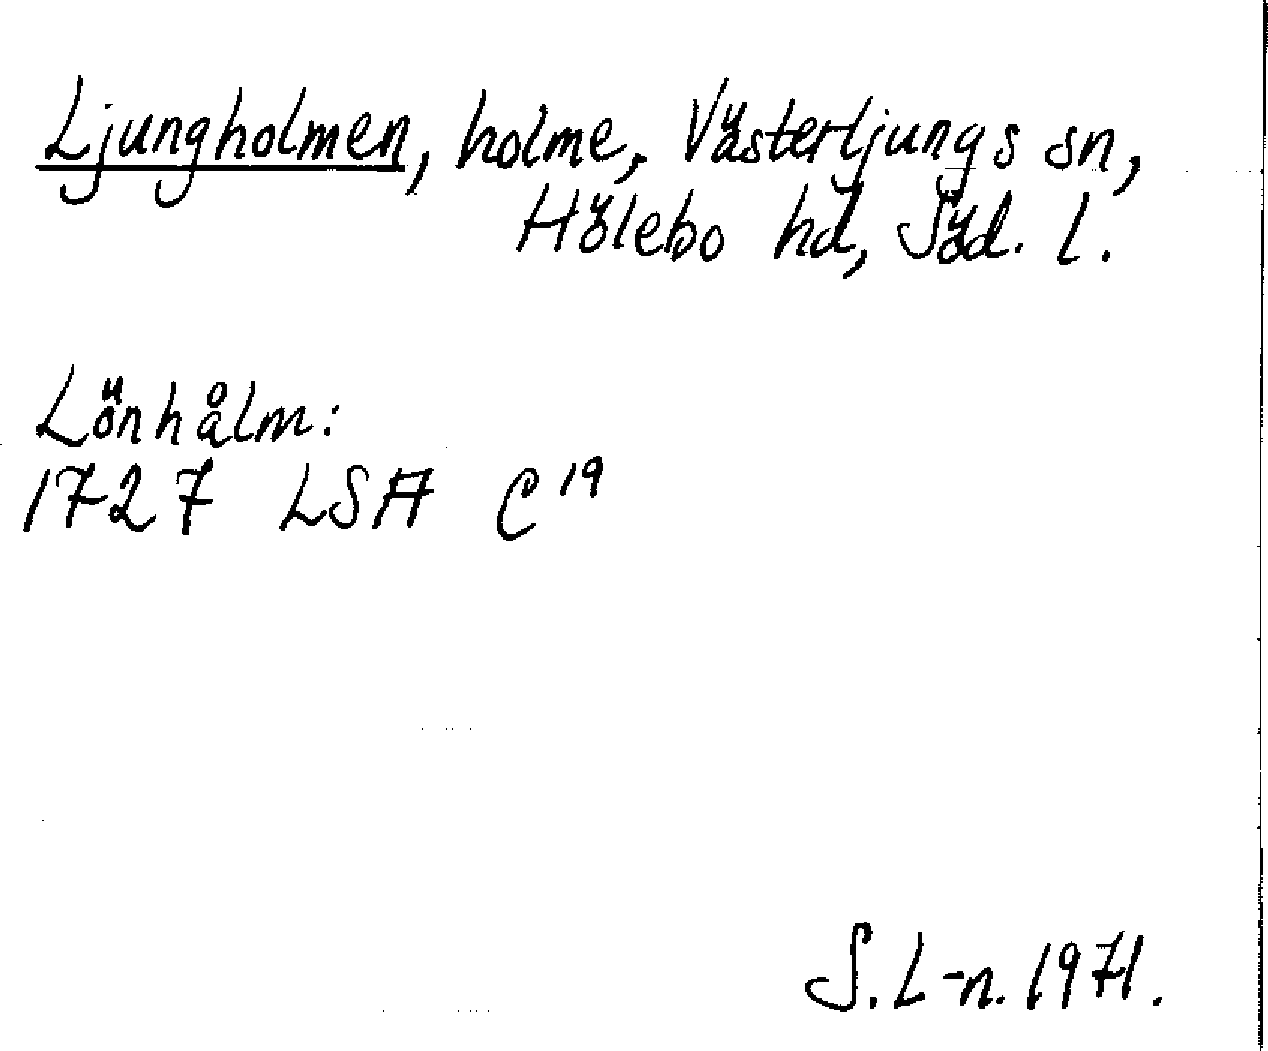 Ljungholmen, holme, Västerljungs sn,
Hölebo hd, Söd. l.
Lönhålm:
1727 LSA C19
S. L-n. 1971.